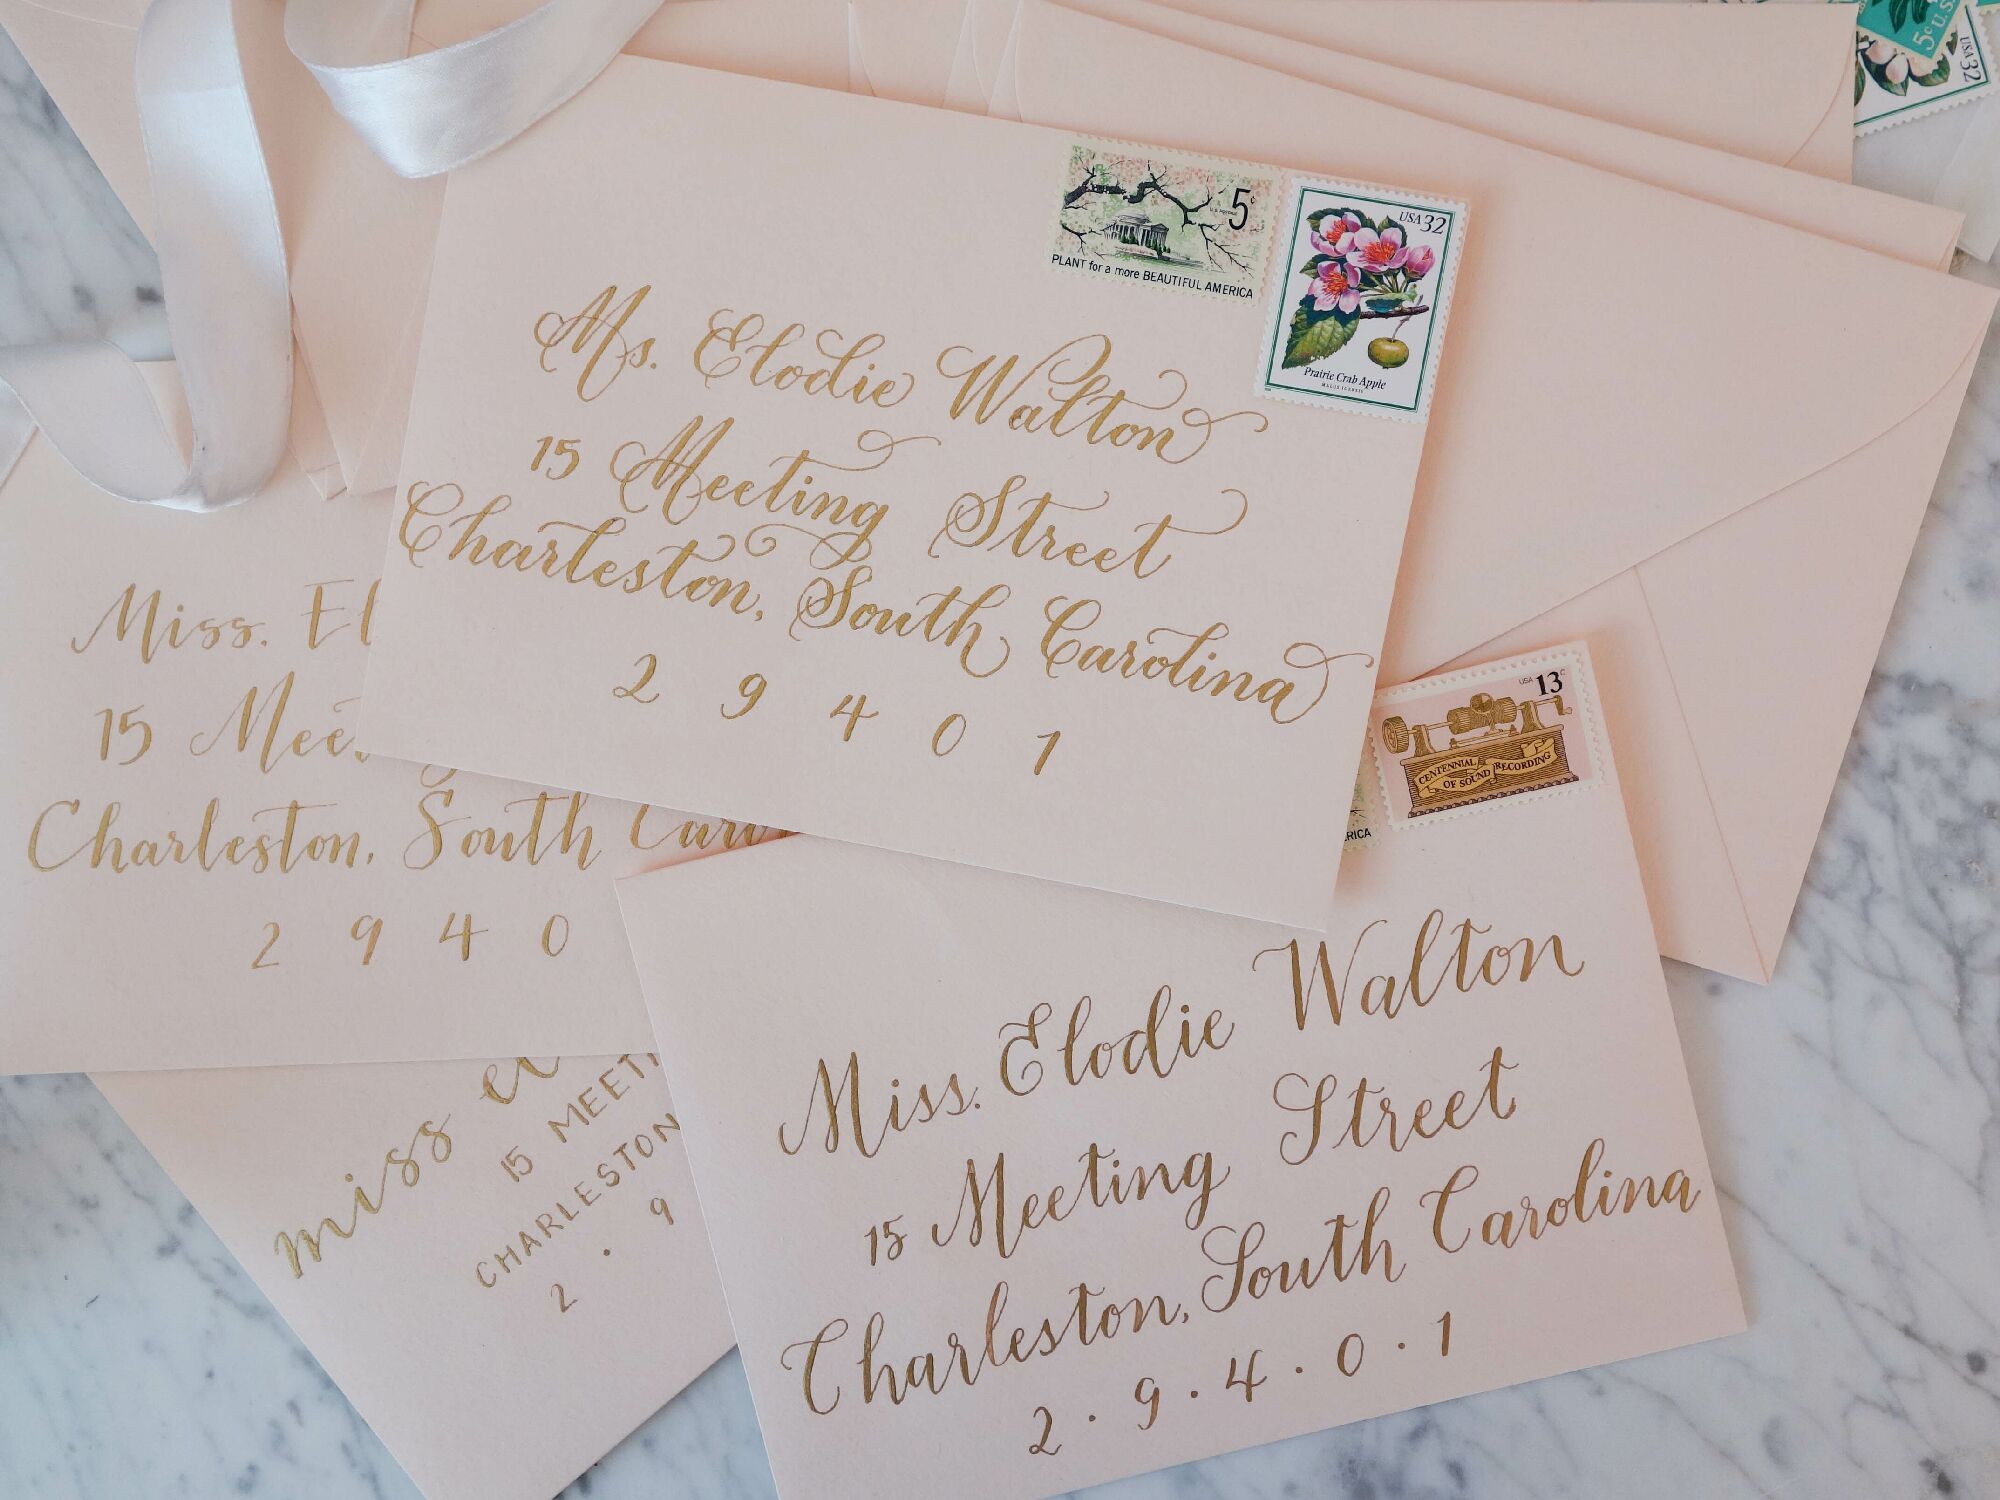 5c U.S.
USA 32
5c
PLANT for a more BEAUTIFUL AMERICA
USA 32
Prairie Crab Apple
Ms. Elodie Walton
15 Meeting Street
Charleston, South Carolina
2 9 4 0 1
USA 13c
CENTENNIAL
OF SOUND RECORDING
RICA
Miss. El
15 Mee
Charleston, South Caro
2 9 4 0
Miss. Elodie Walton
15 Meeting Street
Charleston, South Carolina
2 · 9 · 4 · 0 · 1
miss el
15 MEETI
CHARLESTON
2 · 9